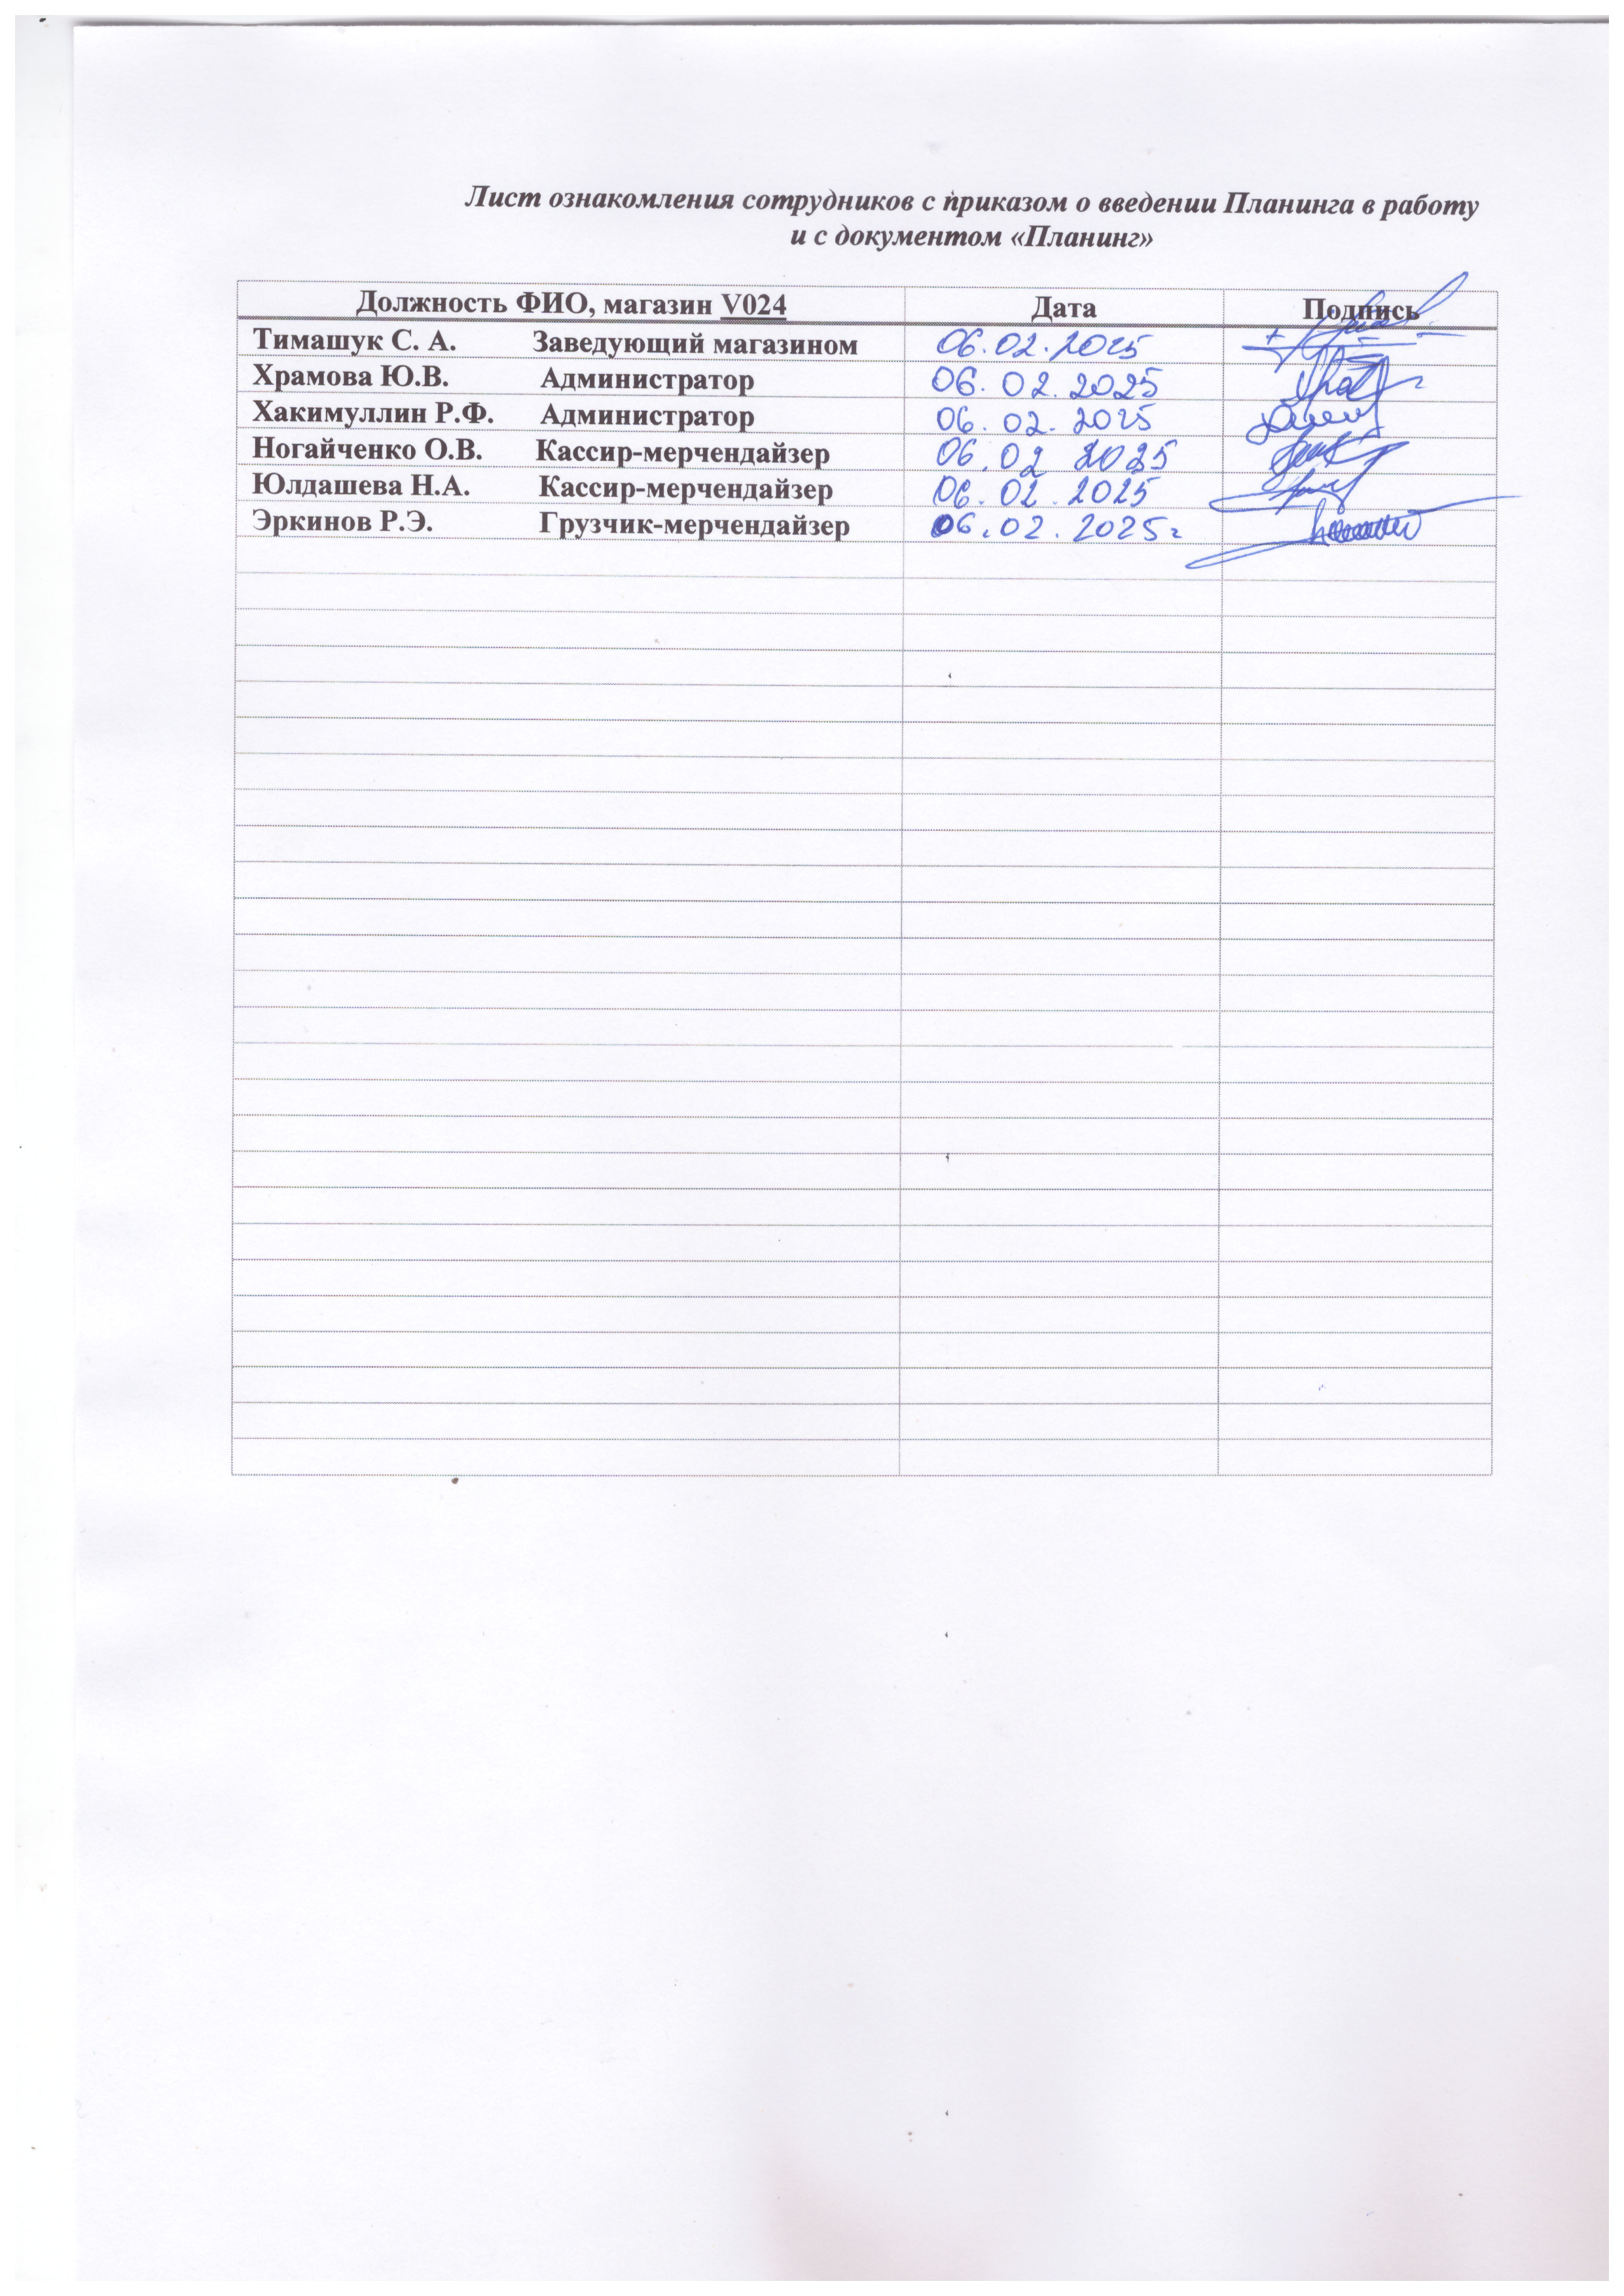 Лист ознакомления сотрудников с приказом о введении Планинга в работу
и с документом «Планинг»
Должность ФИО, магазин V024 Дата Подпись
Тимашук С. А. Заведующий магазином 06.02.2025
Храмова Ю.В. Администратор 06.02.2025
Хакимуллин Р.Ф. Администратор 06.02.2025
Ногайченко О.В. Кассир-мерчендайзер 06.02 2025
Юлдашева Н.А. Кассир-мерчендайзер 06.02.2025
Эркинов Р.Э. Грузчик-мерчендайзер 06.02.2025г